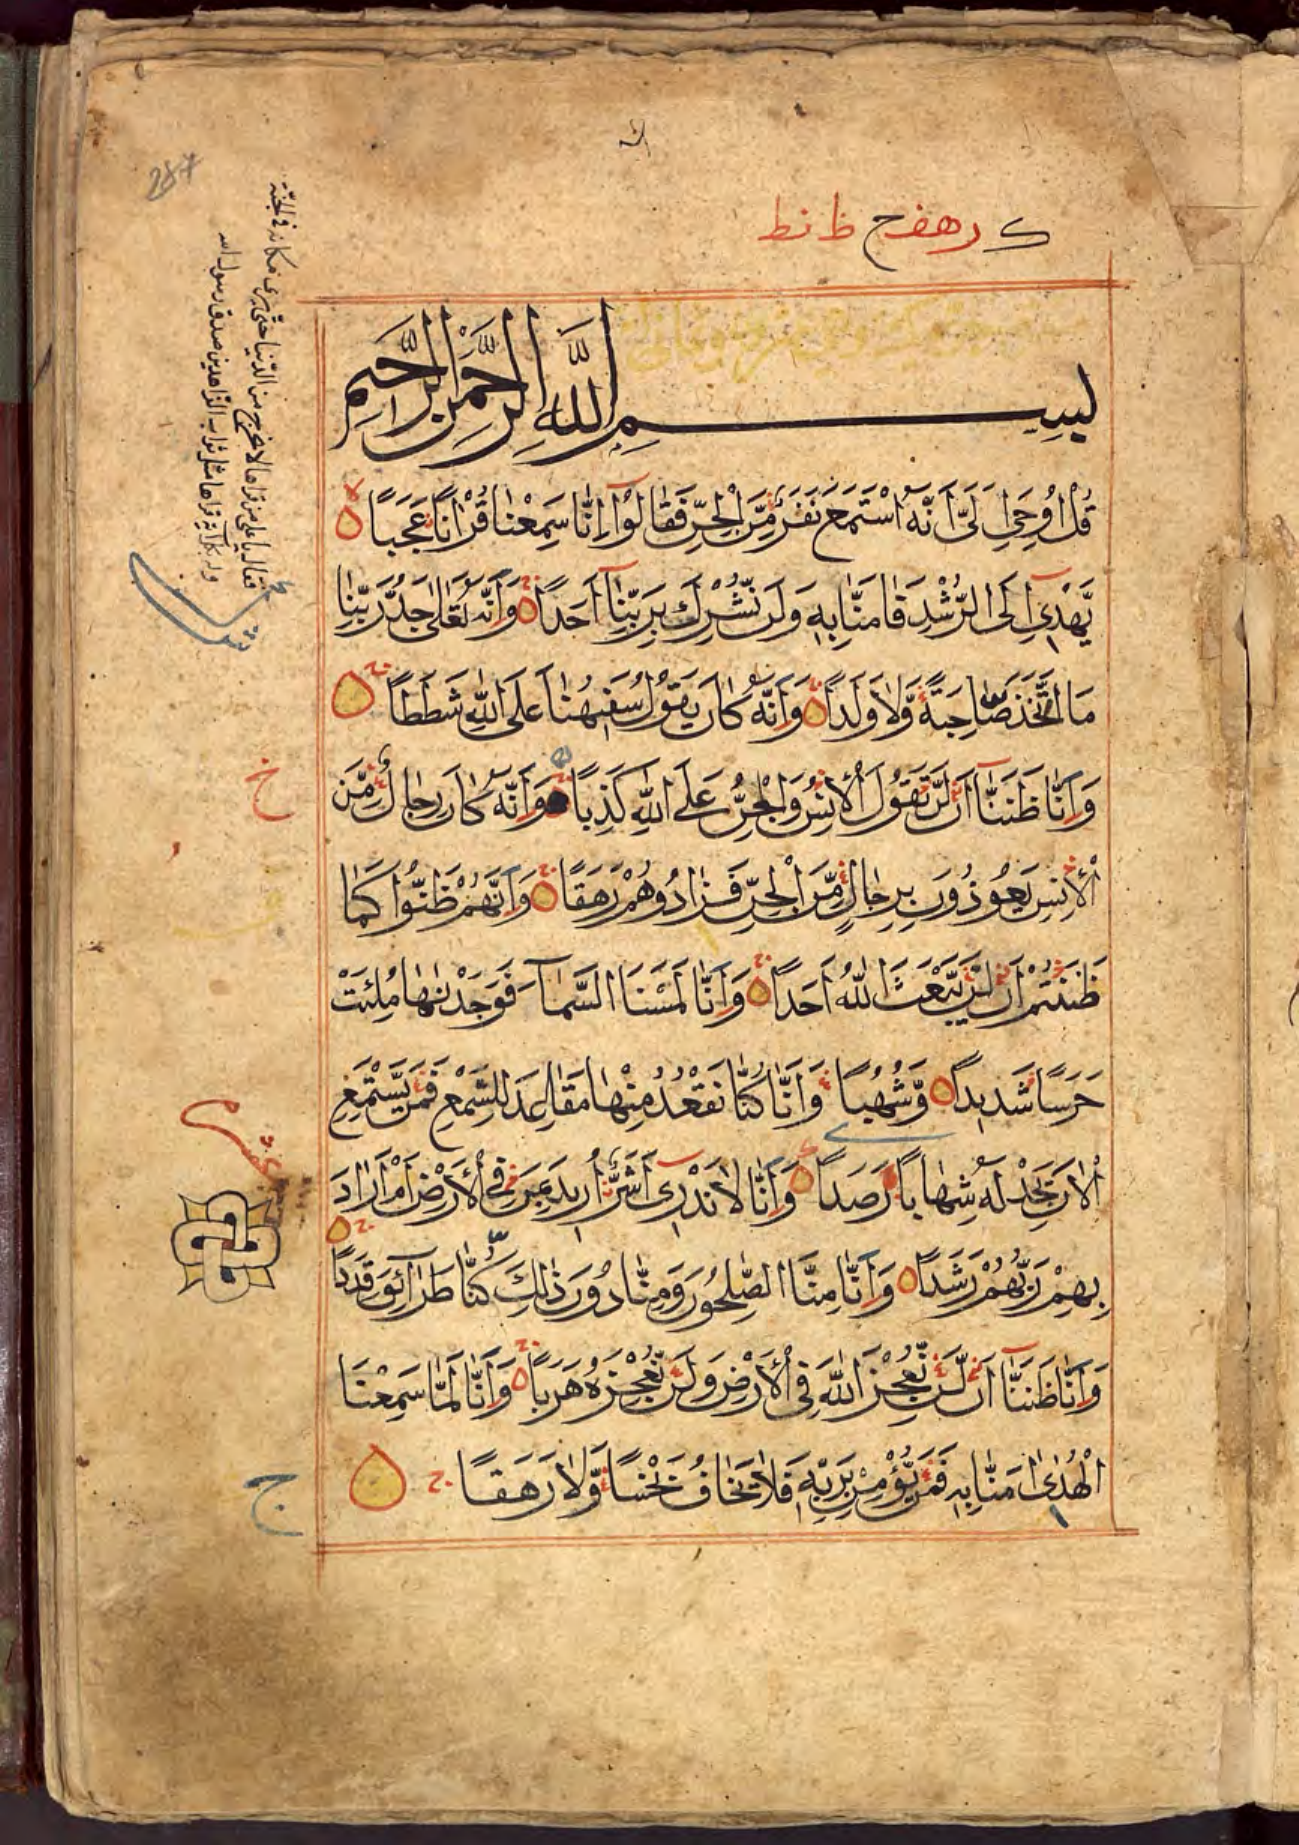 بسم الله الرحمن الرحيم
قُلْ اُوحِىَ اِلَىَّ اَنَّهُ اسْتَمَعَ نَفَرٌ مِّنَ الْجِنِّ فَقَالُوْا اِنَّا سَمِعْنَا قُرْاٰنًا عَجَبًا
يَّهْدِىْ اِلَى الرُّشْدِ فَاٰمَنَّا بِهٖ وَلَنْ نُّشْرِكَ بِرَبِّنَا اَحَدًا وَاَنَّهٗ تَعٰلٰى جَدُّ رَبِّنَا
مَا اتَّخَذَ صَاحِبَةً وَّلَا وَلَدًا وَاَنَّهٗ كَانَ يَقُوْلُ سَفِيْهُنَا عَلَى اللّٰهِ شَطَطًا
وَاَنَّا ظَنَنَّا اَنْ لَّنْ تَقُوْلَ الْاِنْسُ وَالْجِنُّ عَلَى اللّٰهِ كَذِبًا وَاَنَّهٗ كَانَ رِجَالٌ مِّنَ
الْاِنْسِ يَعُوْذُوْنَ بِرِجَالٍ مِّنَ الْجِنِّ فَزَادُوْهُمْ رَهَقًا وَاَنَّهُمْ ظَنُّوْا كَمَا
ظَنَنْتُمْ اَنْ لَّنْ يَّبْعَثَ اللّٰهُ اَحَدًا وَاَنَّا لَمَسْنَا السَّمَآءَ فَوَجَدْنٰهَا مُلِئَتْ
حَرَسًا شَدِيْدًا وَّشُهُبًا وَاَنَّا كُنَّا نَقْعُدُ مِنْهَا مَقَاعِدَ لِلسَّمْعِ فَمَنْ يَّسْتَمِعِ
الْاٰنَ يَجِدْ لَهٗ شِهَابًا رَّصَدًا وَاَنَّا لَا نَدْرِىْ اَشَرٌّ اُرِيْدَ بِمَنْ فِى الْاَرْضِ اَمْ اَرَادَ
بِهِمْ رَبُّهُمْ رَشَدًا وَاَنَّا مِنَّا الصّٰلِحُوْنَ وَمِنَّا دُوْنَ ذٰلِكَ كُنَّا طَرَآئِقَ قِدَدًا
وَاَنَّا ظَنَنَّا اَنْ لَّنْ نُّعْجِزَ اللّٰهَ فِى الْاَرْضِ وَلَنْ نُّعْجِزَهٗ هَرَبًا وَاَنَّا لَمَّا سَمِعْنَا
الْهُدٰى اٰمَنَّا بِهٖ فَمَنْ يُّؤْمِنْ بِرَبِّهٖ فَلَا يَخَافُ بَخْسًا وَّلَا رَهَقًا